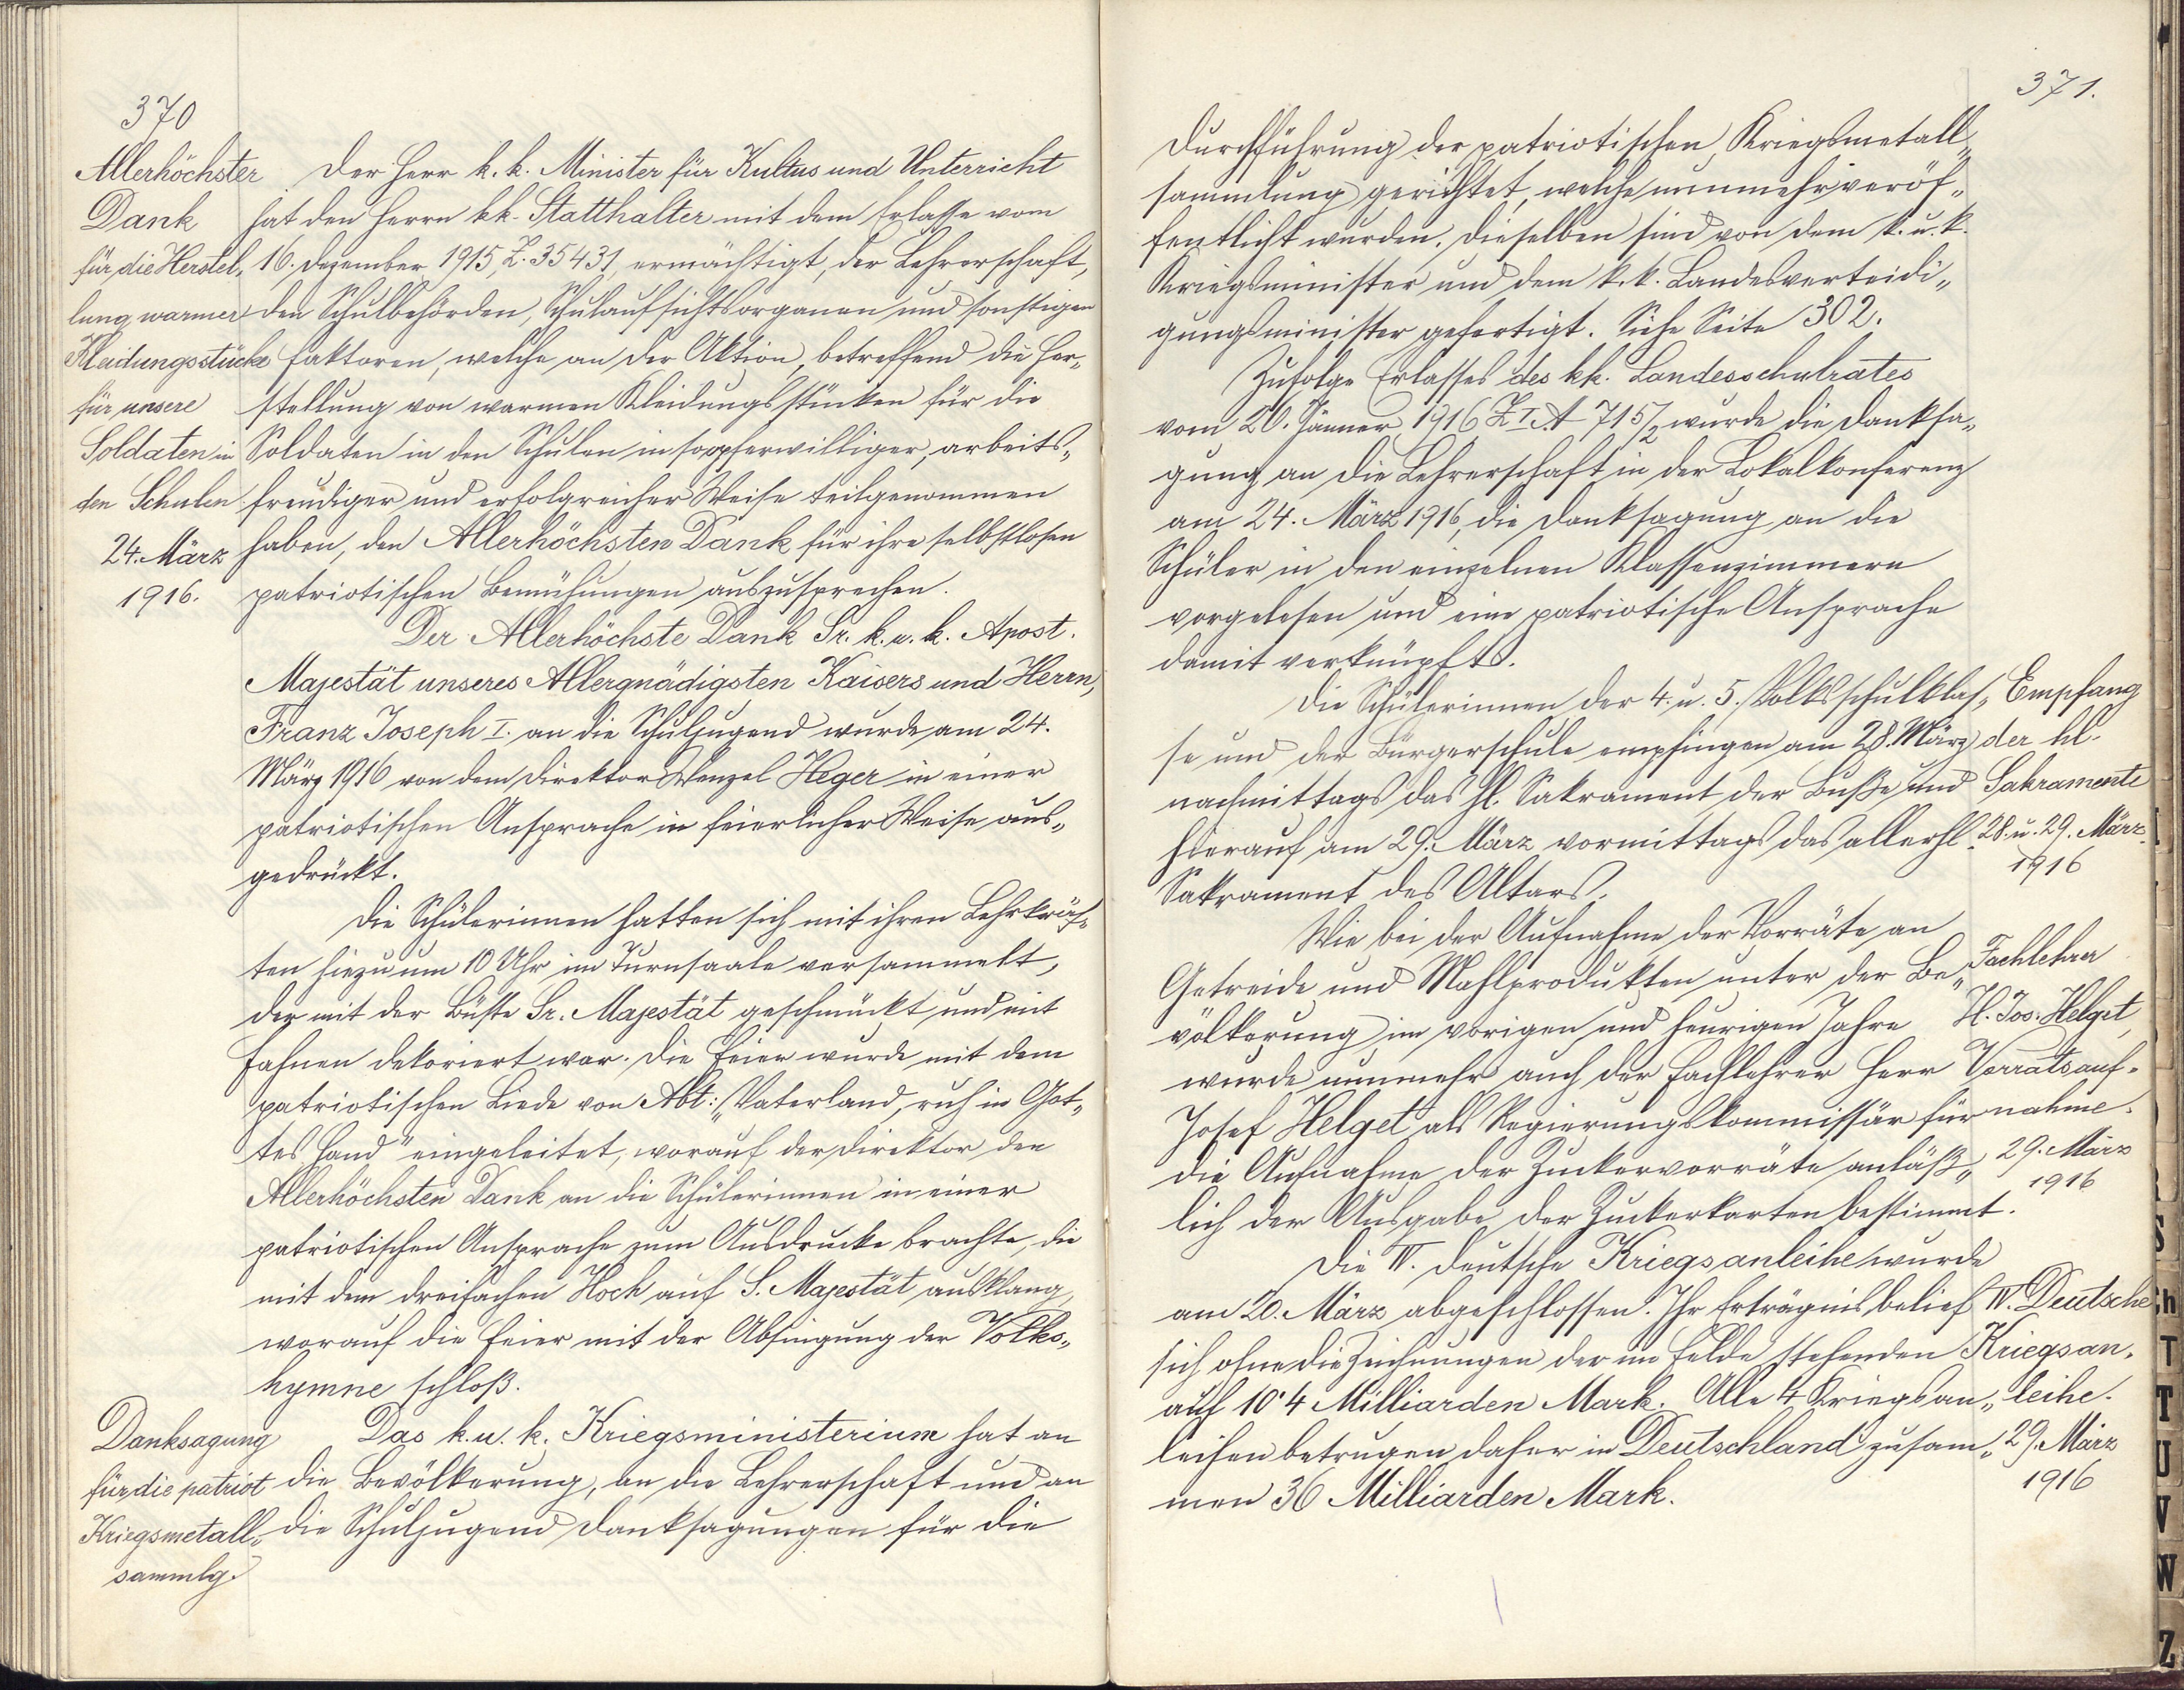 370
Allerhöchster
Dank
für die Herstel„
lung warmer
Kleidungsstücke
für unsere
Soldaten in
den Schulen
24. März
1916.
Der Herr k. k. Minister für Kultus und Unterricht
hat den Herrn kk. Statthalter mit dem Erlasse vom
16. Dezember 1915, Z. 35431, ermächtigt, der Lehrerschaft,
den Schulbehörden, Schulaufsichtsorganen und sonstigen
Faktoren, welche an der Aktion, betreffend die Her„
stellung von warmen Kleidungsstücken für die
Soldaten in den Schulen in so opferwilliger, arbeits„
freudiger und erfolgreicher Weise teilgenommen
haben, den Allerhöchsten Dank für ihre selbstlosen
patriotischen Bemühungen auszusprechen.
Der Allerhöchste Dank Sr. k. u. k. Apost.
Majestät unseres Allergnädigsten Kaisers und Herrn,
Franz Joseph I. an die Schuljugend wurde am 24.
März 1916 von dem Direktor Wenzel Heger in einer
patriotischen Ansprache in feierlicher Weise aus„
gedrückt.
Die Schülerinnen hatten sich mit ihren Lehrkräf„
ten hiezu um 10 Uhr im Turnsaale versammelt,
der mit der Büste Sr. Majestät geschmückt und mit
Fahnen dekoriert war. Die Feier wurde mit dem
patriotischen Liede von Abt: „Vaterland, ruh in Got„
tes Hand" eingeleitet, worauf der Direktor den
Allerhöchsten Dank an die Schülerinnen in einer
patriotischen Ansprache zum Ausdrucke brachte, die
mit dem dreifachen Hoch auf S. Majestät ausklang,
worauf die Feier mit der Absingung der Volks„
hymne schloß.
Danksagung
für die patriot
Kriegsmetall„
sammlg.
Das k. u. k. Kriegsministerium hat an
die Bevölkerung, an die Lehrerschaft und an
die Schuljugend Danksagungen für die
371.
Durchführung der patriotischen Kriegsmetall„
sammlung gerichtet, welche nunmehr veröf„
fentlicht wurden. Dieselben sind von dem k. u. k.
Kriegsminister und dem k. k. Landesverteidi„
gungsminister gefertigt. Siehe Seite 302.
Zufolge Erlasses des kk. Landesschulrates
vom 20. Jänner 1916 Z I. A 715/2 wurde die Danksa„
gung an die Lehrerschaft in der Lokalkonferenz
am 24. März 1916, die Danksagung an die
Schüler in den einzelnen Klassenzimmern
vorgelesen und eine patriotische Ansprache
damit verknüpft.
Die Schülerinnen der 4. u. 5. Volksschulklas„
se und der Bürgerschule empfingen am 28. März
nachmittags das hl. Sakrament der Buße und
hierauf am 29. März vormittags das allerhl.
Sakrament des Altars.
Empfang
der hl.
Sakramente
28. u. 29. März
1916
Wie bei der Aufnahme der Vorräte an
Getreide und Mahlprodukten unter der Be„
völkerung im vorigen und heurigen Jahre
wurde nunmehr auch der Fachlehrer Herr
Josef Helget als Regierungskommissär für
die Aufnahme der Zuckervorräte anläß„
lich der Ausgabe der Zuckerkarten bestimmt.
Fachlehrer
H. Jos. Helget,
Vorratsauf„
nahme.
29. März
1916
Die IV. deutsche Kriegsanleihe wurde
am 20. März abgeschlossen. Ihr Erträgnis belief
sich ohne die Zeichnungen der im Felde stehenden
auf 10·4 Milliarden Mark. Alle 4 Kriegsan„
leihen betrugen daher in Deutschland zusam„
men 36 Milliarden Mark.
IV. Deutsche
Kriegsan„
leihe.
29. März
1916
S
h
T
T
U
V
W
Z